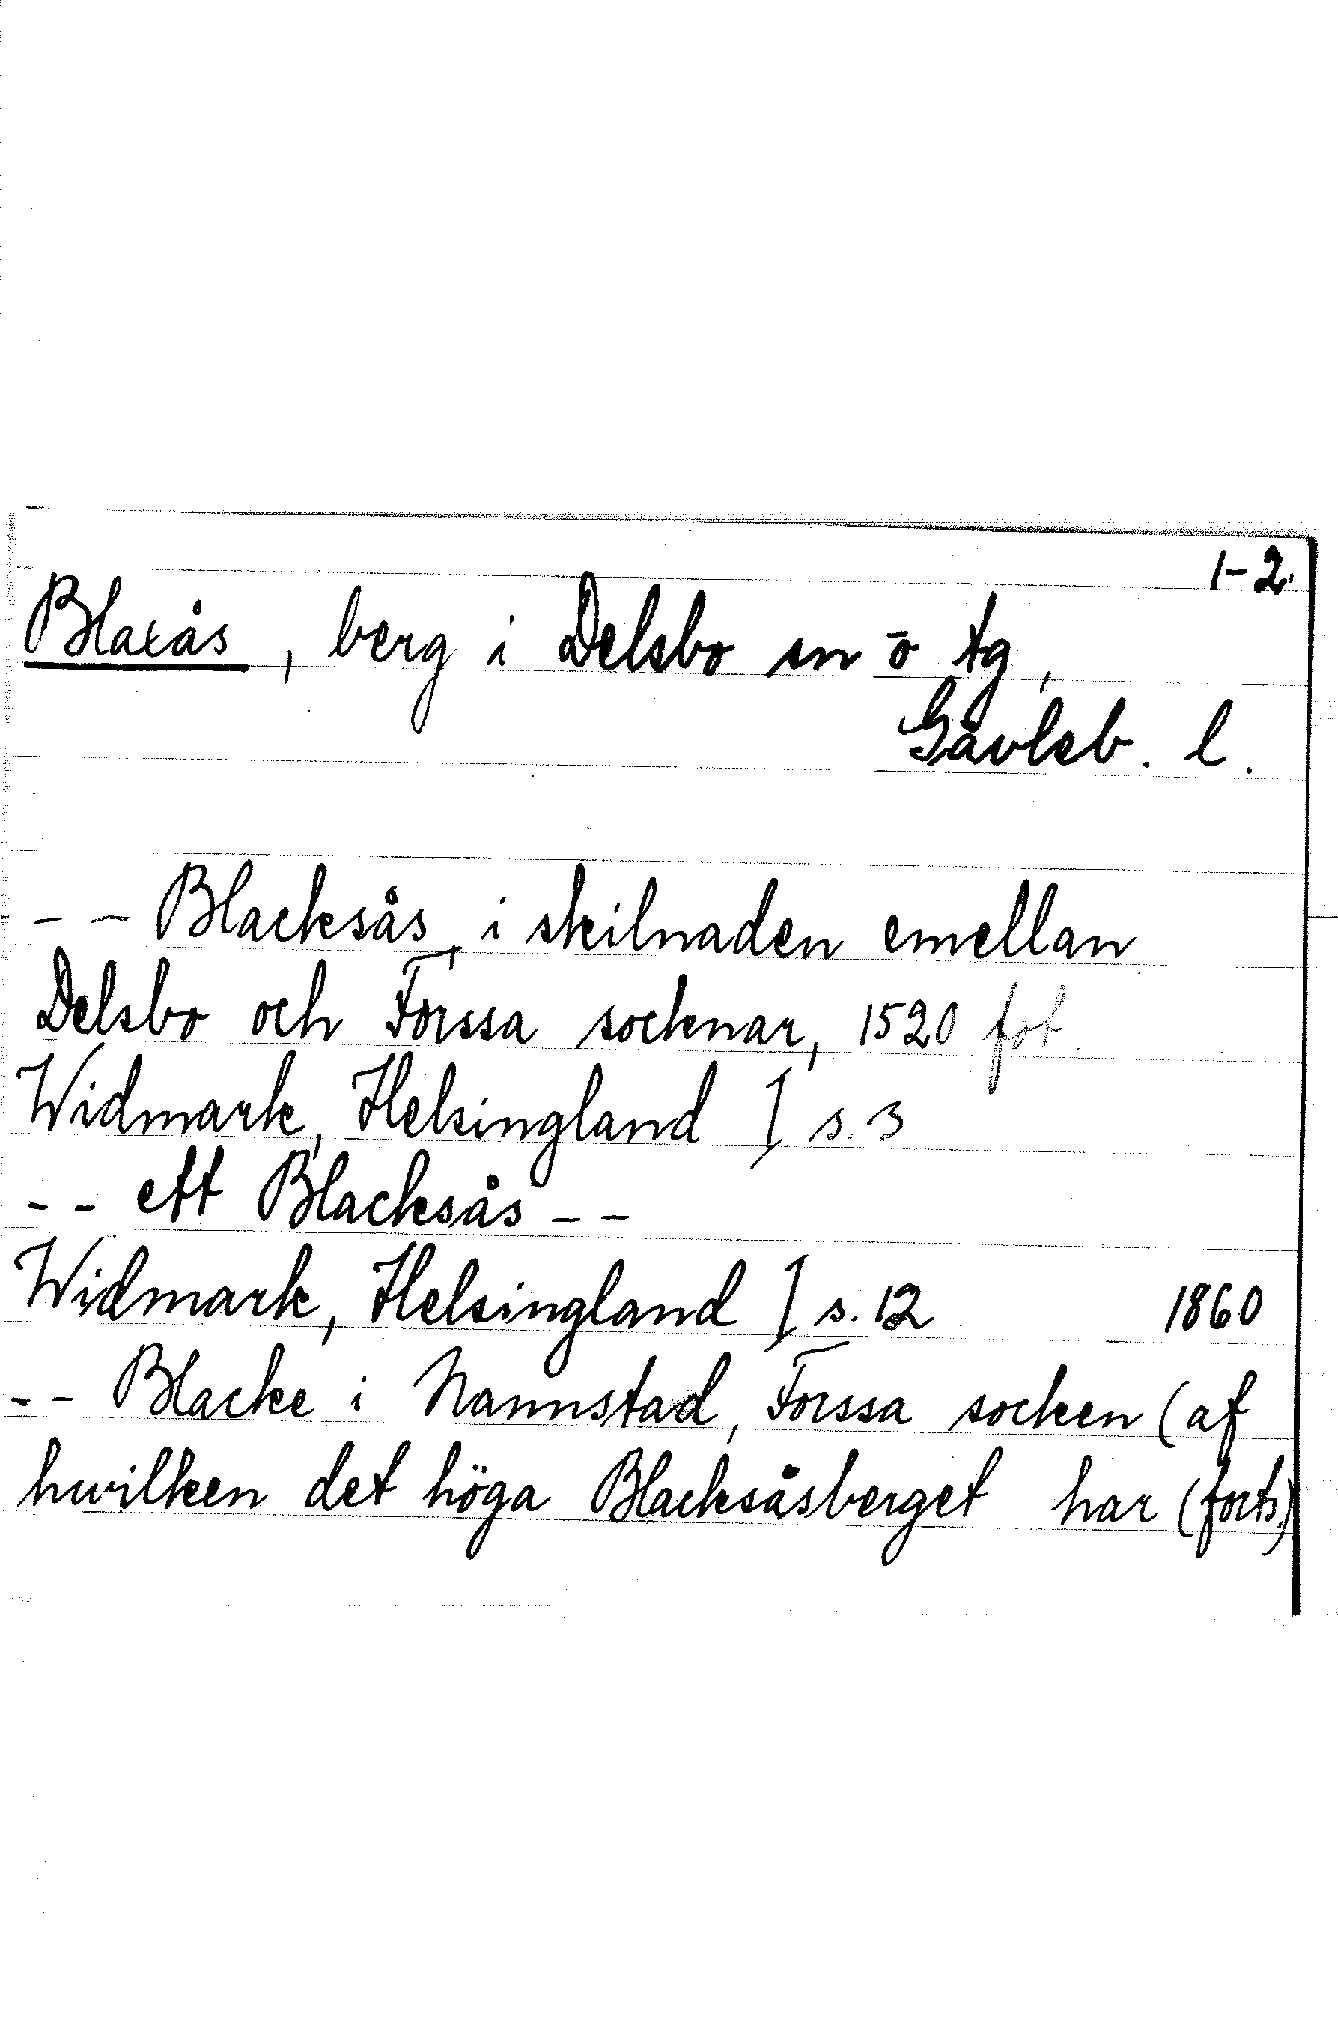 1-2.
Blaxås, berg i Delsbo sn o tg,
Gävleb. l.
-- Blacksås, i skilnaden emellan
Delsbo och Forssa socknar, 1520 fot.
Widmark, Helsingland I s. 3
-- ett Blacksås --
Widmark, Helsingland I s. 12 1860
-- Blacke i Nannstad, Forssa socken (af
hwilken det höga Blacksåsberget har (forts.)